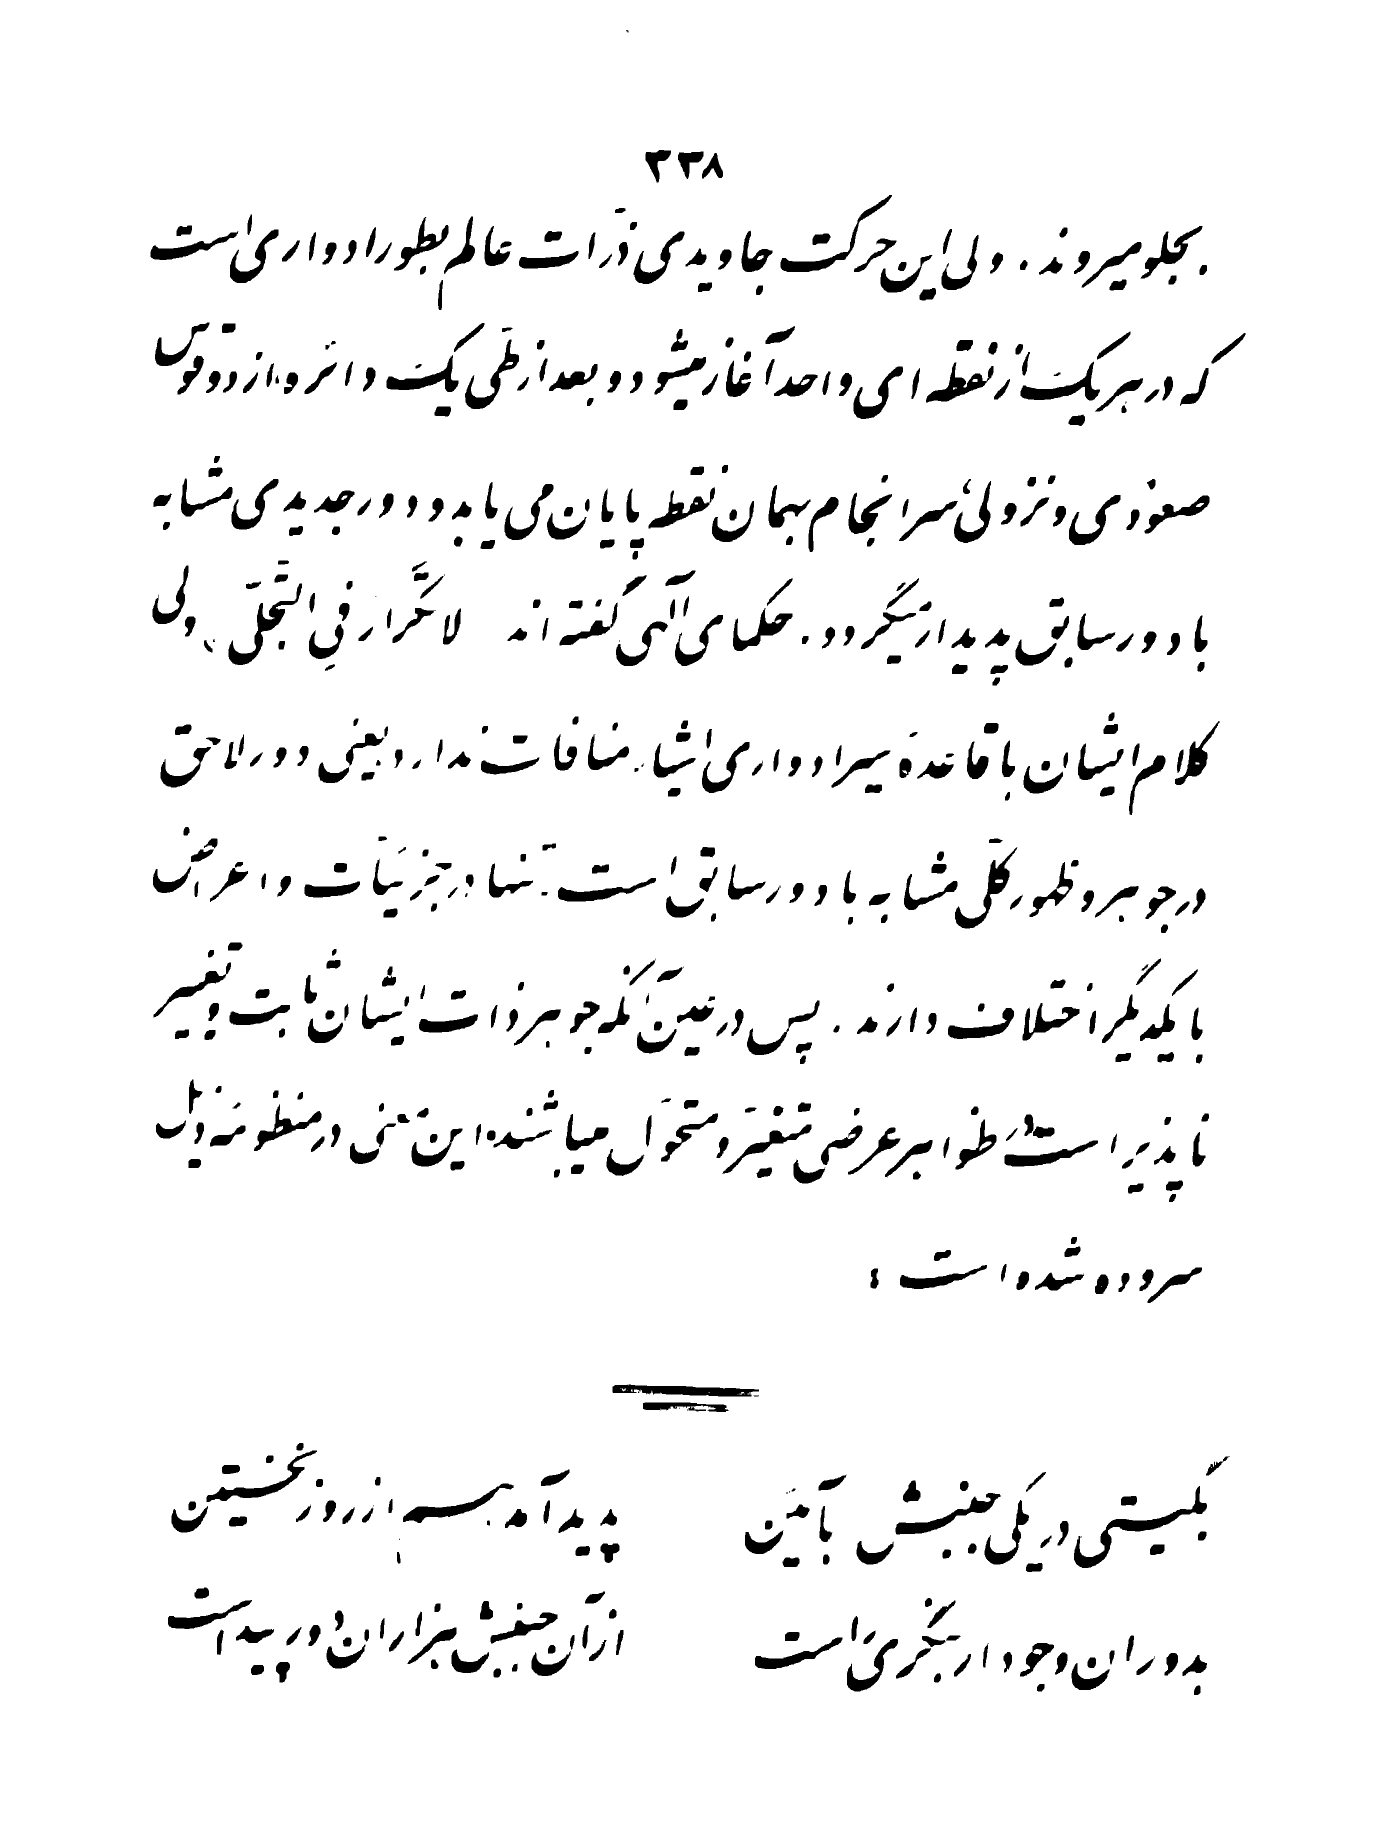 ۳۳۸
بجلو میروند . ولی این حرکت جاویدی ذرّات عالم بطور ادواری است
که در هر یک از نقطه ای واحد آغاز میشود و بعد از طّی یک دائره و از دو قوس
صعودی و نزولی سرانجام بهمان نقطه پایان می یابد و دور جدیدی مشابه
با دور سابق پدیدار میگردد . حکمای الٓهی گفته اند لا تکرار فی التّجلّی ، ولی
کلام ایشان با قاعدهٔ سیر ادواری اشیاء منافات ندارد یعنی دور لاحق
در جوهر و ظهور کلّی مشابه با دور سابق است تنها در جزئیّات و اعراض
با یکدیگر اختلاف دارند . پس در عین آنکه جوهر ذات ایشان ثابت و تغییر
ناپذیر است ظواهر عرضی متغیّر و متحوّل میباشند این معنی در منظومهٔ ذیل
سروده شده است :
بگیتی در یکی جنبش بآئین
پدید آمد بسم از روز نخستین
بدوران وجود ار بنگری راست
از آن جنبش هزاران دور پیداست